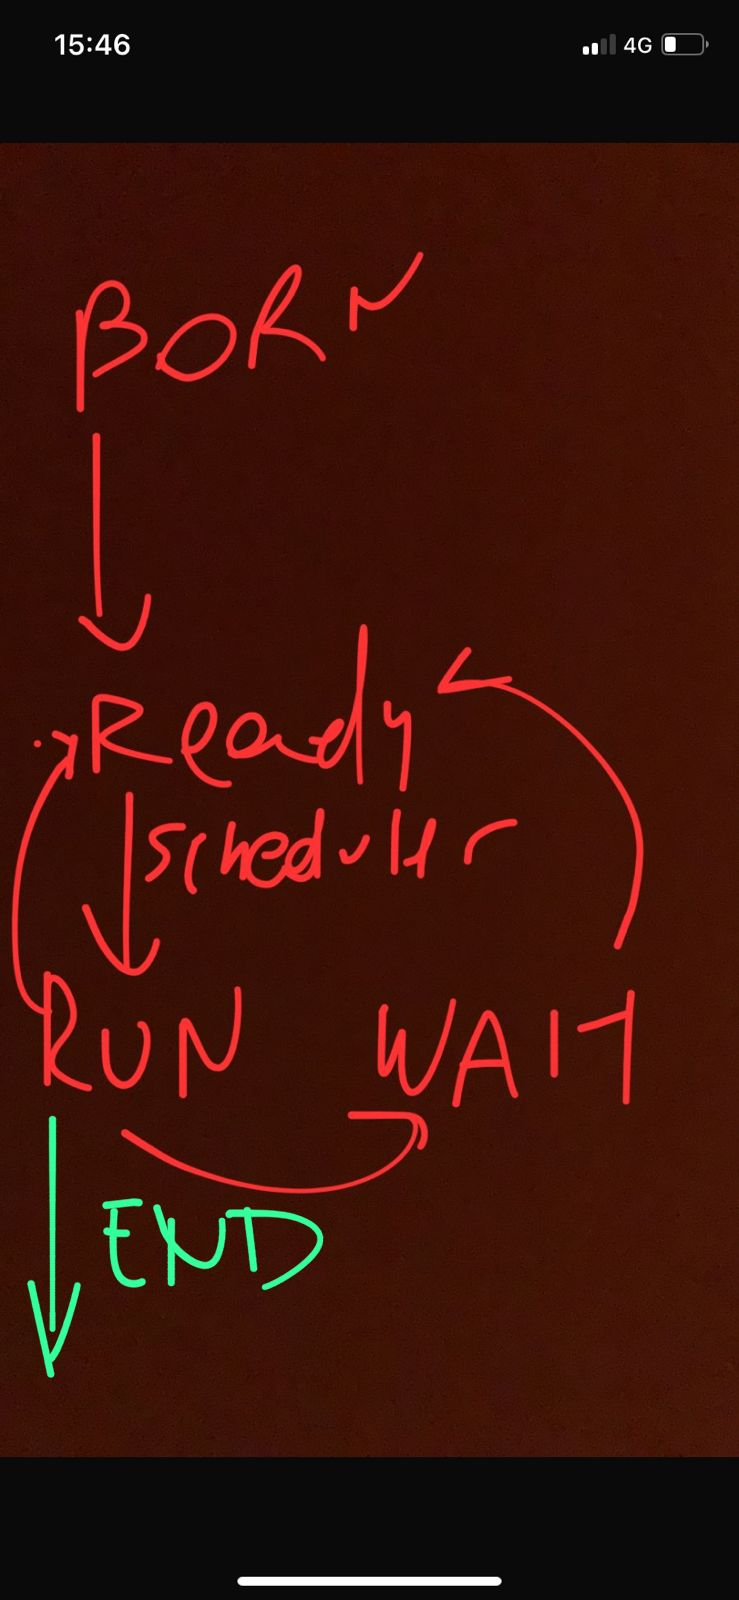 15:46 4G
BORN
Ready
scheduler
RUN WAIT
END